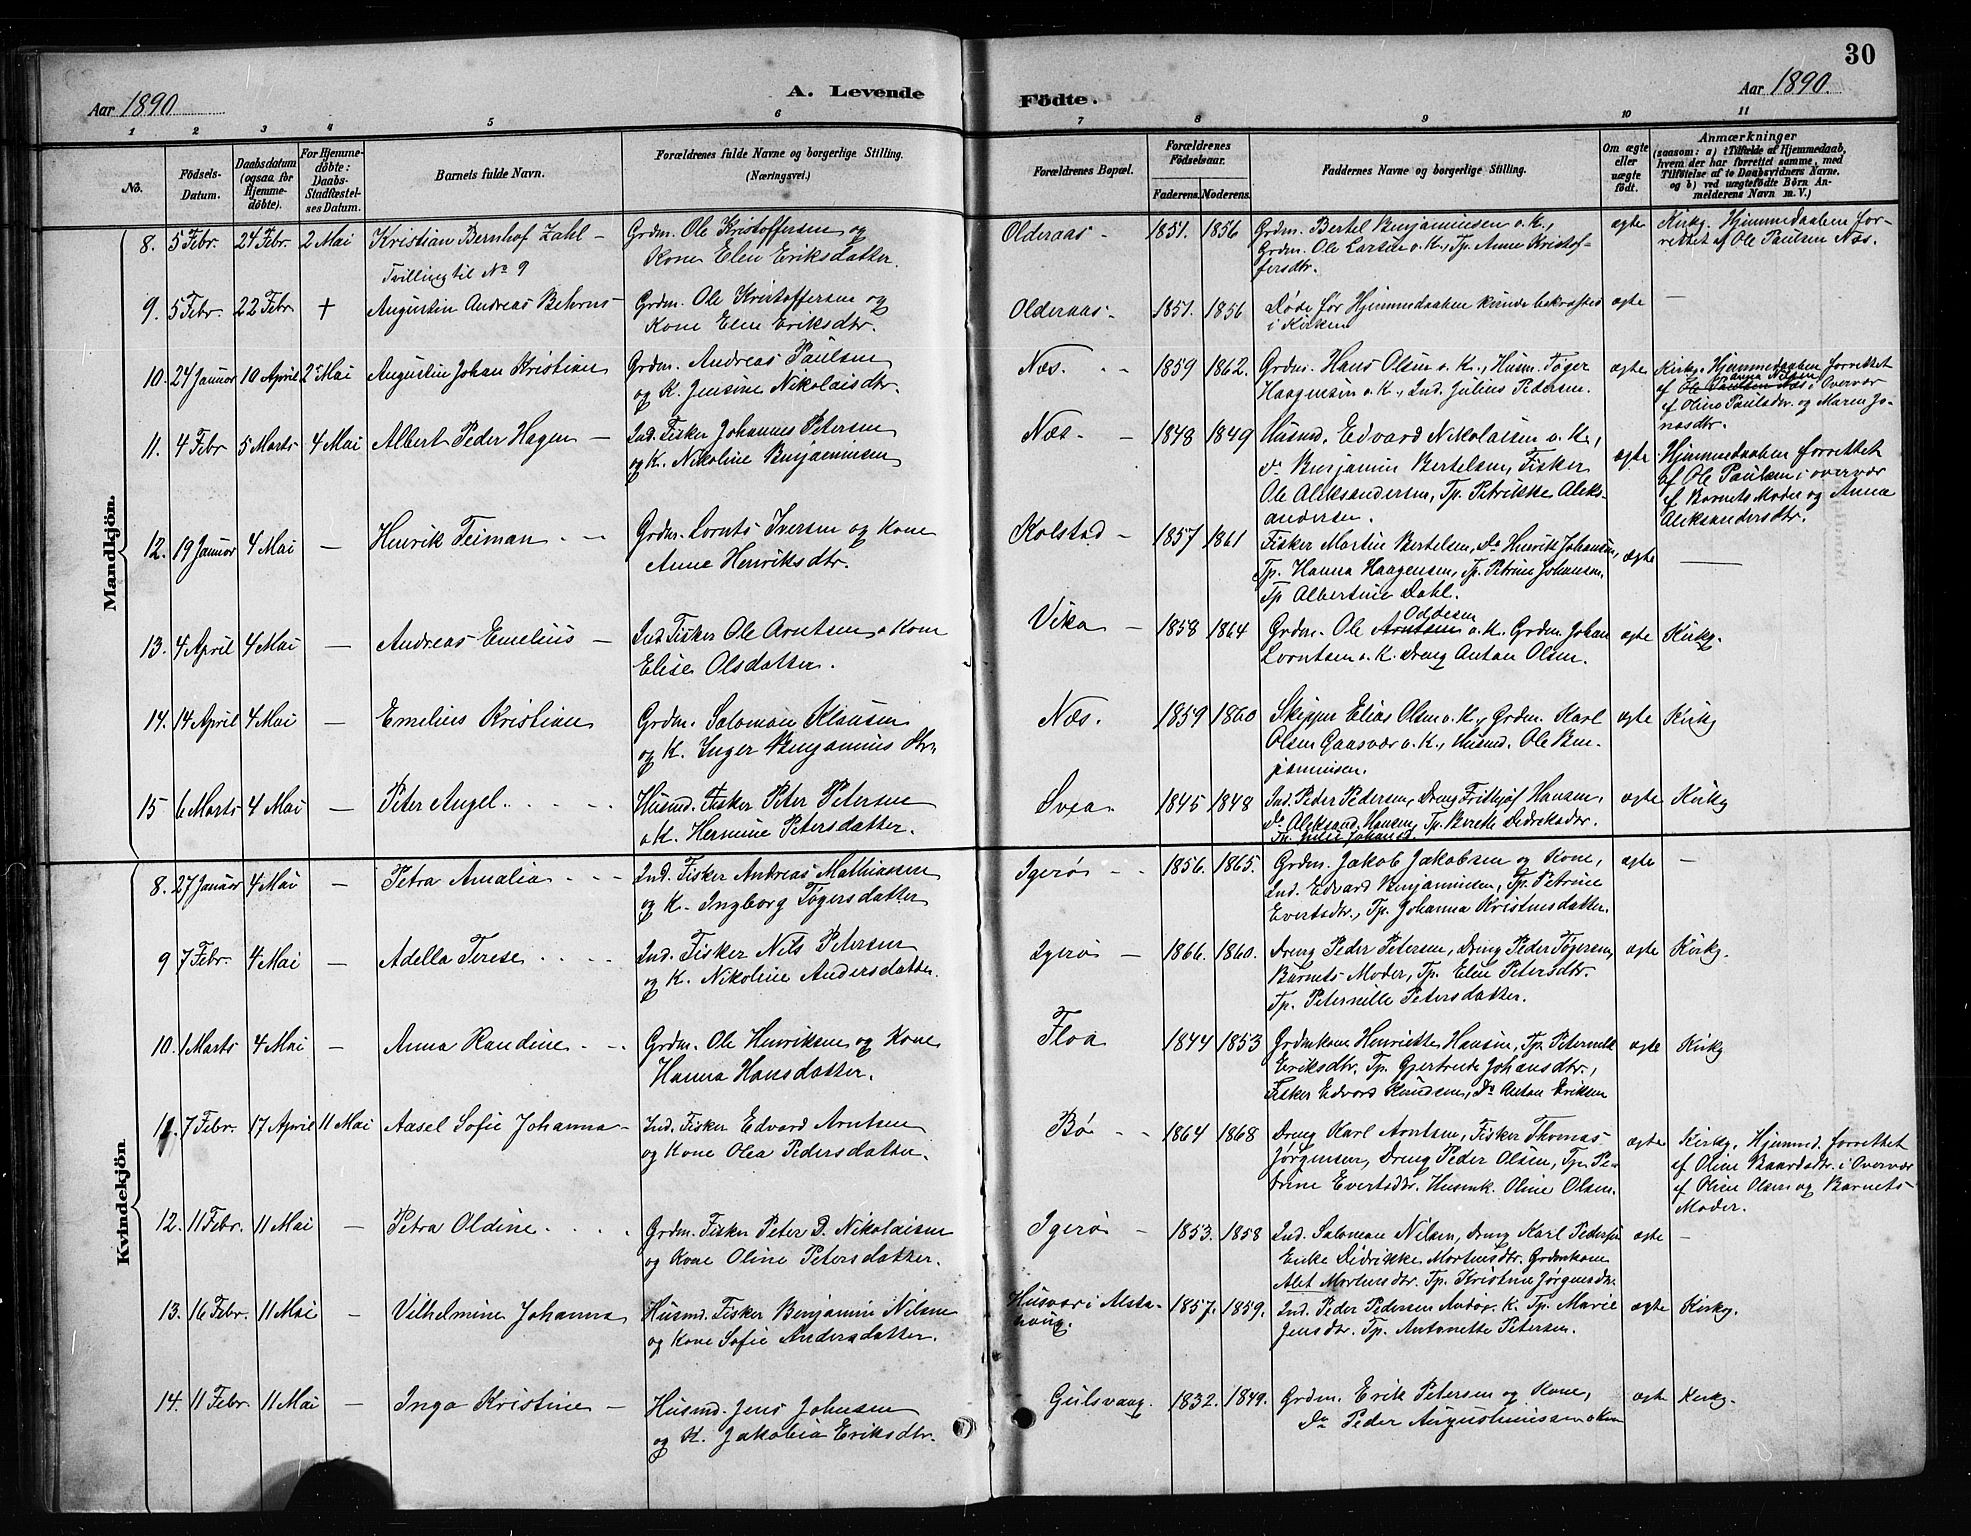 30
Aar 1890
A. Levende
Födte.
Aar 1890.
1 2 3 4 5 6 7 8 9 10 11
No.
Födsels-Datum.
Daabsdatum (ogsaa for Hjemme-döbte).
For Hjemme-döbte: Daabs-Stadfæstel-ses Datum.
Barnets fulde Navn.
Forældrenes fulde Navne og borgerlige Stilling. (Næringsvei.)
Forældrenes Bopæl.
Forældrenes Födselsaar.
Faderens. Moderens.
Faddernes Navne og borgerlige Stilling.
Om ægte eller uægte födt.
Anmærkninger
(saasom: a) i Tilfælde af Hjemmedaab, hvem der har forrettet samme, med Tilföielse af to Daabsvidners Navne. og b) ved uægtefödte Börn An-melderens Navn m. V.)
Mandkjön.
8. 5 Febr. 24 Febr. 2 Mai Kristian Bernhof Zahl – Grdm. Ole Kristoffersen og Olderaas – 1851. 1856 Grdm. Bertel Benjaminsen o. K., ægte Kirkg. Hjemmedaaben for-
Tvilling til No 9 Kone Elen Eriksdatter. Grdm. Ole Larsen o. K., Tp. Anne Kristof- rettet af Ole Paulsen Næs.
fersdtr.
9. 5 Febr. 22 Febr + Augustin Andreas Behrns – Grdm. Ole Kristoffersen og Olderaas – 1851. 1856 Døde før Hjemmedaaben kunde bekræftes ægte —
Kone Elen Eriksdtr. i Kirken
10. 24 Januar 10 April 2 Mai Augustin Johan Kristian Grdm. Andreas Paulsen Næs. 1859 1862. Grdm. Hans Olsen o. K., Husm. Tøger ægte Kirkg. Hjemmedaaben forrettet
og K. Jensine Nikolaisdtr. Haagensen o. K., Ind. Julius Pedersen. af Ole Paulsen Næs i Overvær
af Oline Paulsdtr. og Maren Jo-
nasdtr.
11. 4 Febr 5 Marts 4 Mai Albert Peder Hagen – Ind. Fisker Johannes Petersen Næs. – 1848 1849 Husmd. Edvard Nikolaisen o. K., ægte Hjemmedaaben forrettet
og K. Nikoline Benjaminsen do Benjamin Bertelsen, Fisker af Ole Paulsen i overvær
Ole Aleksandersen, Tp. Petrikke Aleks- af Barnets Moder og Anna
andersen. Aleksandersdtr.
12. 19 Januar 4 Mai – Henrik Teiman – Grdm. Lornts Iversen og Kone Kolstad – 1857 1861 Fisker Martin Bertelsen, Do Henrik Johansen, ægte —
Anne Henriksdtr. Tp. Hanna Haagensen, Tp. Petrine Johansen,
Tp Albertine Dahl.
13. 4 April 4 Mai – Andreas Emelius – Ind. Fisker Ole Arntsen o Kone Vika – 1858 1864 Grdm. Ole Arntsen o. K. Grdm. Johan ægte Kirkg.
Elise Olsdatter. Lorntsen o. K. Dreng Anton Olsen.
14. 14 April 4 Mai – Emelius Kristian Grdm. Salomon Klausen Næs. 1859 1860 Skipper Elias Olsen o. K., Grdm. Karl ægte Kirkg
og K. Inger Benjamins dtr. Olsen Gaasvær o. K., Husmd. Ole Ben-
jaminsen.
15 6 Marts 4 Mai – Peter Angel Husmd. Fisker Peter Petersen Svea – 1845 1848 Ind. Peder Pedersen, Dreng Fridthjof Hansen, ægte Kirkg
o K. Hermine Petersdatter. Do Aleksand. Hansen, Tp. Berethe Didriksdtr.
Kvindekjön
8. 27 Januar 4 Mai – Petra Amalia Ind. Fisker Andreas Mathiasen Igerø 1856. 1865. Grdm. Jakob Jakobsen og Kone, ægte –
og K. Ingborg Tøgersdatter Ind. Edvard Benjaminsen, Tp. Petrine
Evertsdtr., Tp. Johanna Kristensdatter.
9 7 Febr. 4 Mai – Adella Terese Ind. Fisker Nils Petersen Igerø – 1866. 1860. Dreng Peder Petersen, Dreng Peder Tøgersen, ægte Kirkg.
og K. Nikoline Andersdatter. Barnets Moder, Tp. Eline Petersdtr.
Tp. Peternille Petersdatter.
10. 1 Marts 4 Mai – Anna Randine Grdm. Ole Henriksen og Kone Floa 1844 1853 Grdmkone Henriette Hansen, Tp. Peternille ægte Kirkg
Hanna Hansdatter. Eriksdtr. Tp. Gjertrude Johansdtr.,
Fisker Edvard Knudsen, Do Anton Eriksen
11. 7 Febr. 17 April 11 Mai Aasel Sofie Johanna – Ind. Fisker Edvard Arntsen Bø – 1864 1868 Dreng Karl Arntsen, Fisker Thomas ægte Kirkg. Hjemmed. forrettet
og Kone Olea Pedersdatter. Jørgensen, Dreng Peder Olsen, Tp. Pe- af Oline Baardsdtr. i Overvær
trine Evertsdtr. Husmk. Oline Olsen. af Oline Olsen og Barnets
Moder.
12. 11 Febr. 11 Mai – Petra Oldine Grdm. Fisker Peter D. Nikolaisen Igerø – 1853. 1858 Ind. Salomon Nilsen, Dreng Karl Pedersen ægte –
og Kone Oline Petersdatter. Enke Didrikke Mortensdtr. Grdmkone
Alet Mortensdtr. Tp. Kristine Jørgensdtr.
13. 16 Febr. 11 Mai – Vilhelmine Johanna Husmd. Fisker Benjamin Nilsen Husvær i Alsta- 1857. 1859. Ind. Peder Pedersen Andø o. K. Tp. Marie ægte Kirkg.
og Kone Sofie Andersdatter. houg. Jensdtr. Tp. Antonette Petersen.
14. 11 Febr. 11 Mai – Inga Kristine – Husmd. Jens Johnsen Gulsvaag. 1832. 1849. Grdm. Erik Petersen og Kone, ægte Kirkg.
og K. Jakobia Eriksdtr. Do Peder Augustinussen o Kone